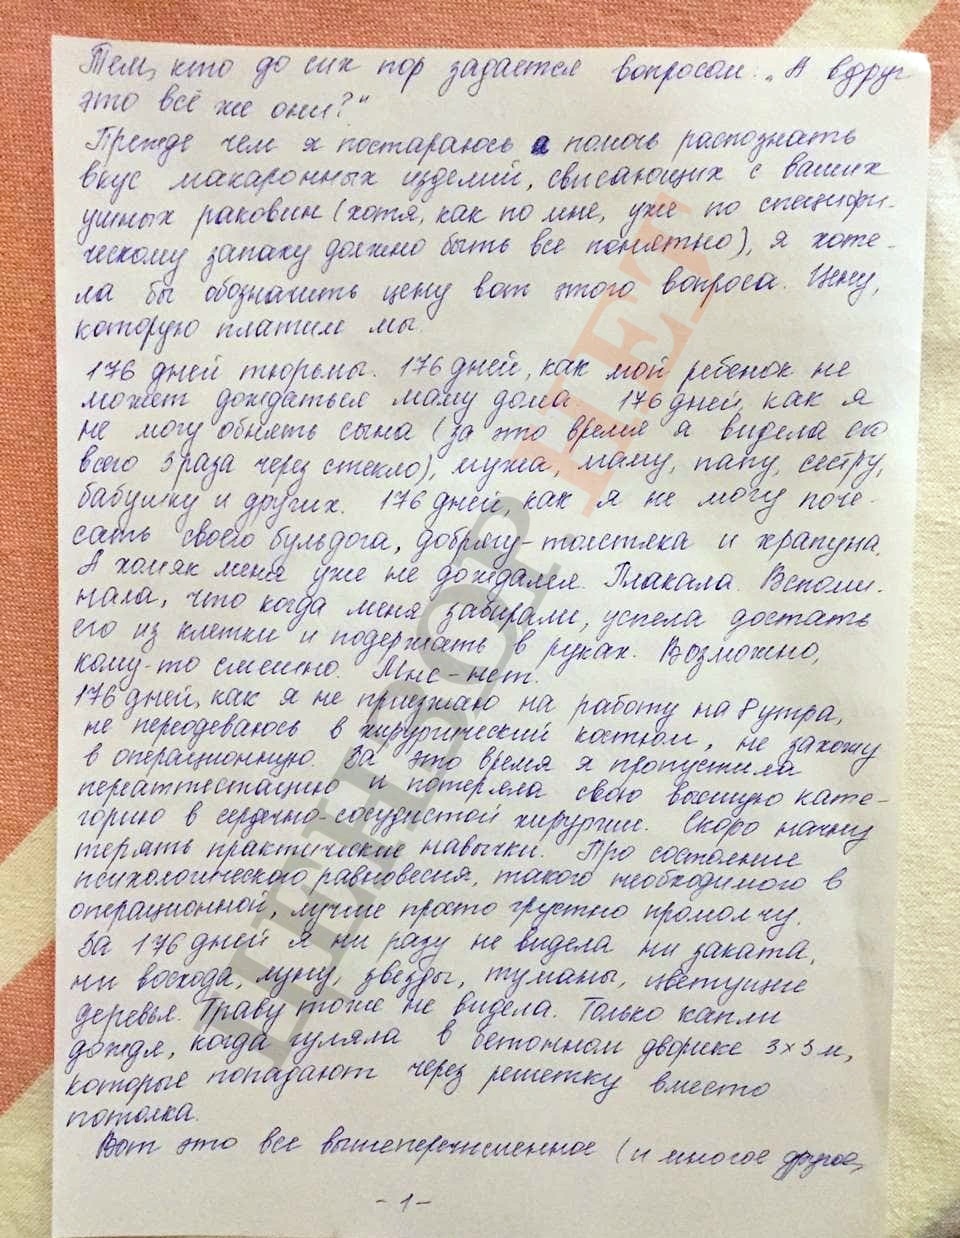 Тем, кто до сих пор задается вопросом: „А вдруг
это всё же они?"
Прежде чем я постараюсь помочь распознать
вкус макаронных изделий, свисающих с ваших
ушных раковин (хотя, как по мне, уже по специфи-
ческому запаху должно быть все понятно), я хоте-
ла бы обозначить цену вот этого вопроса. Цену,
которую платим мы.
176 дней тюрьмы. 176 дней, как мой ребенок не
может дождаться маму дома. 176 дней, как я
не могу обнять сына (за это время я видела его
всего 3 раза через стекло), мужа, маму, папу, сестру,
бабушку и других. 176 дней, как я не могу поче-
сать своего бульдога, добрягу-толстяка и храпуна.
А хомяк меня уже не дождался. Плакала. Вспоми-
нала, что когда меня забирали, успела достать
его из клетки и подержать в руках. Возможно,
кому-то смешно. Мне - нет.
176 дней, как я не приезжаю на работу на 8 утра,
не переодеваюсь в хирургический костюм, не захожу
в операционную. За это время я пропустила
переаттестацию и потеряла свою высшую кате-
горию в сердечно-сосудистой хирургии. Скоро начну
терять практические навыки. Про состояние
психологического равновесия, такого необходимого в
операционной, лучше просто грустно промолчу.
За 176 дней я ни разу не видела ни заката,
ни восхода, луну, звезды, туманы, цветущие
деревья. Траву тоже не видела. Только капли
дождя, когда гуляла в бетонном дворике 3×3 м,
которые попадают через решетку вместо
потолка.
Вот это все вышеперечисленное (и многое другое,
- 1 -
ЦЕНЗОР НЕТ